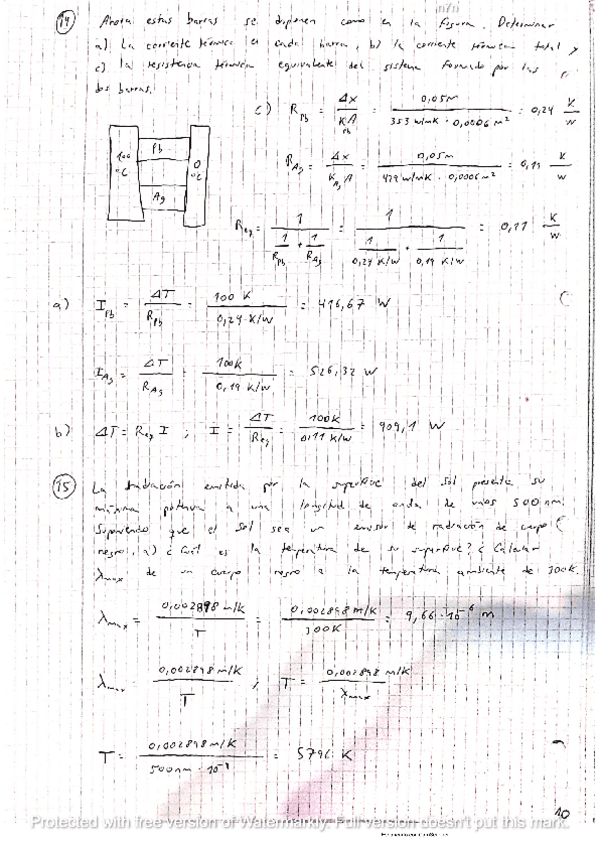 14 Ahora estas barras se disponen como en la figura. Determinar
a) La corriente térmica en cada barra, b) la corriente térmica total y
c) la resistencia térmica equivalente del sistema formado por las
dos barras.
100 °C Pb Ag 0 °C
c) R_Pb = Δx / K_Pb A = 0,05m / 353 w/mK · 0,0006 m² = 0,24 K/W
R_Ag = Δx / K_Ag A = 0,05m / 429 w/mK · 0,0006 m² = 0,19 K/W
R_eq = 1 / (1/R_Pb + 1/R_Ag) = 1 / (1/0,24 K/W + 1/0,19 K/W) = 0,11 K/W
a) I_Pb = ΔT / R_Pb = 100 K / 0,24 K/W = 416,67 W
I_Ag = ΔT / R_Ag = 100K / 0,19 K/W = 526,32 W
b) ΔT = R_eq I ; I = ΔT / R_eq = 100K / 0,11 K/W = 909,1 W
15 La radiación emitida por la superficie del Sol presenta su
máxima potencia a una longitud de onda de unos 500 nm.
Suponiendo que el Sol sea un emisor de radiación de cuerpo
negro, a) ¿Cuál es la temperatura de su superficie? ¿ Calcular
λmax de un cuerpo negro a la temperatura ambiente de 300K.
λmax = 0,002898 m/K / T = 0,002898 m/K / 300K = 9,66 · 10⁻⁶ m
λmax 0,002898 m/K / T ; T = 0,002898 m/K / λmax
T = 0,002898 m/K / 500nm · 10⁻⁹ = 5796 K
10
Protected with free version of Watermarkly. Full version doesn't put this mark.